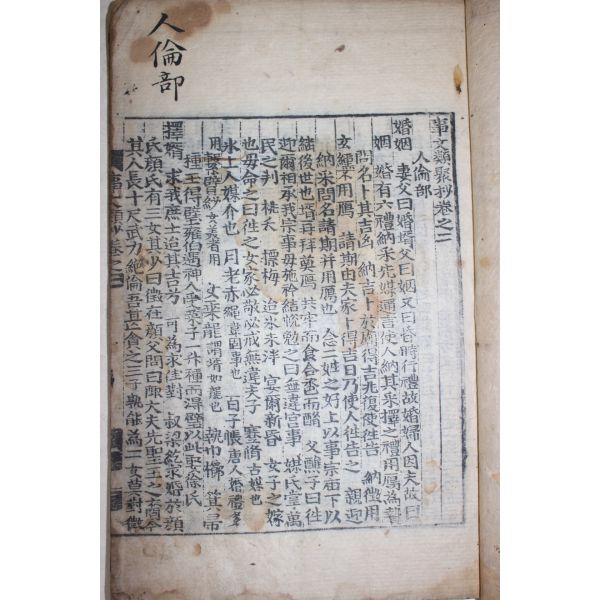 人倫部
事文類聚抄卷之二
人倫部
婚姻 妻父曰婚壻父曰姻又曰昏時行禮故曰婚婦人因夫故曰
姻 婚有六禮納采先媒通言使人納其采擇之禮用鴈爲贄
問名卜其吉凶 納吉卜於廟得吉兆復使往告 納徵用
玄纁不用鴈 請期由夫家卜得吉日乃使人往告之 親迎
納采問名請期并用鴈也 合二姓之好上以事宗庙下以
継後世也 壻再拜奠鴈 共牢而食合巹而酳 父醮子曰往
迎爾相承我宗事 毋施衿結帨勉之曰無違宮事 媒氏掌萬
民之判 桃夭 摽梅 迨氷未泮 宴爾新昏 女子之嫁
也母命之曰往之女家必敬必戒無違夫子 蹇脩古媒也
氷上人媒介也 月老赤繩 百子帳唐人婚禮多
用 女乘龍謂壻如龍也 執巾櫛 箕帚
種玉得璧雍伯遇神人 以此娶徐氏
擇壻 求我庶士迨其吉兮 可爲求佳對 叔梁紇求婚於顔
氏顔氏有三女其少曰徵在顔父問曰陬大夫先聖王之裔今
其人長十尺武力絶倫吾甚貪之三子孰能爲 徵